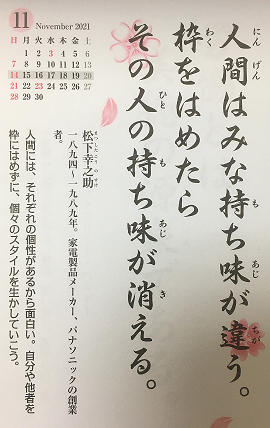 11 November 2021
日 月 火 水 木 金 土
1 2 3 4 5 6
7 8 9 10 11 12 13
14 15 16 17 18 19 20
21 22 23 24 25 26 27
28 29 30
にん げん も あじ ちが
人間はみな持ち味が違う。
わく
枠をはめたら
ひと も あじ き
その人の持ち味が消える。
松下幸之助
一八九四〜一九八九。家電製品メーカー、パナソニックの創業
者。
人間には、それぞれの個性があるから面白い。自分や他者を
枠にはめずに、個々のスタイルを生かしていこう。